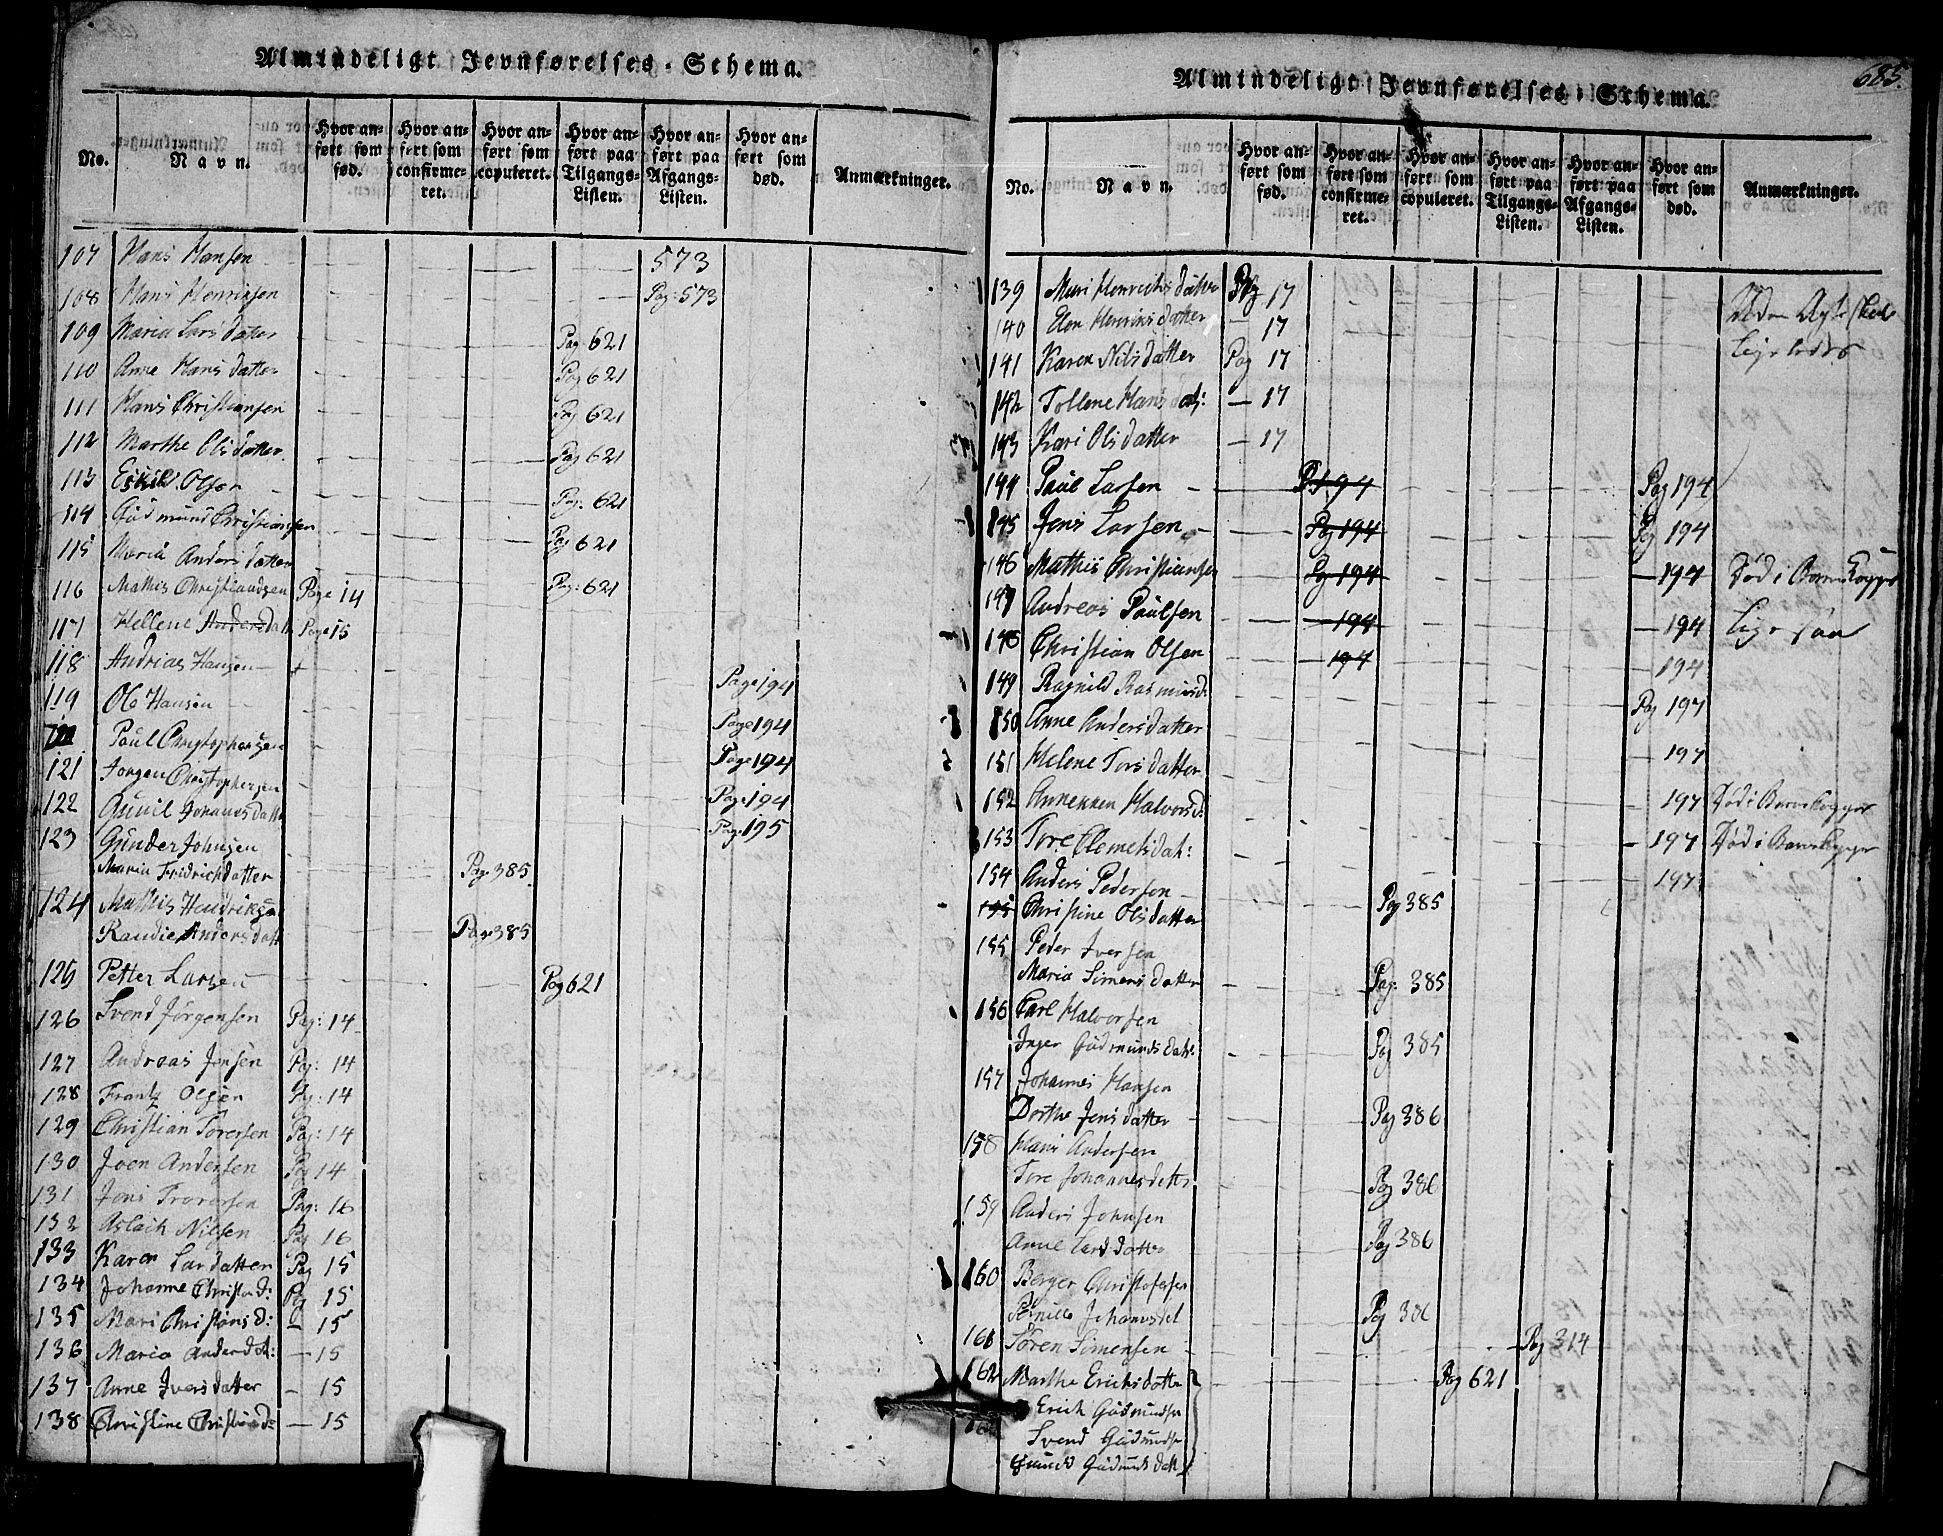 Almindeligt Jevnførelses-Schema.
No. Navn. Hvor anført som fød. Hvor anført som confirmeret. Hvor anført som copuleret. Hvor anført paa Tilgangs-Listen. Hvor anført paa Afgangs-Listen. Hvor anført som død. Anmærkninger.
107 Hans Hansen 573
108 Hans Henriksen Pag: 573
109 Maria Larsdatter Pag 621
110 Anne Hansdatter Pag 621
111 Hans Christiansen Pag 621
112 Marthe Olsdatter Pag 621
113 Eskild Olsen Pag: 621
114 Gudmund Christiansen Pag 621
115 Maria Andersdatter Pag: 621
116 Mathis Christiandsen Page 14
117 Hellene Andersdatt Page 15
118 Andrias Hansen Page 194
119 Ole Hansen Page 194
Paul Christophersen Page 194
121 Jorgen Christophersen Page 194
122 Gunil Johansdatt Page 195
123 Gunder Johnsen
Maria Fridrichdatter Pag. 385
124 Mathis Hendriksen
Randie Andersdatt Page 385
125 Petter Larsen Pag 621
126 Svend Jørgensen Pag: 14
127 Andreas Jensen Pag: 14
128 Frantz Olsen Pag: 14
129 Christian Torersen Pag: 14
130 Joen Andersen Pag 14
131 Jens Trorersen Pag: 16
132 Aslach Nilsen Pag 16
133 Karen Lardatter Pag 15
134 Johanne Christ d: Pag 15
135 Mari Christians d: — 15
136 Maria Anderdat: — 15
137 Anne Iversdatter — 15
138 Christine Christians d: — 15
Almindeligt Jevnførelses-Schema.
685.
No. Navn. Hvor anført som fød. Hvor anført som confirmeret. Hvor anført som copuleret. Hvor anført paa Tilgangs-Listen. Hvor anført paa Afgangs-Listen. Hvor anført som død. Anmærkninger.
139 Mari Henrichsdatter Pag 17
140 Elen Henriksdatter — 17
141 Karen Nilsdatter Pag 17
142 Tollene Hansdat: — 17
143 Kari Olsdatter — 17
144 Paul Larsen P. 194 Pag 194
145 Jens Larsen Pag 194 Pag 194
146 Mathis Christiansen Pag 194 — 194
147 Andreas Paulsen — 194 — 194
148 Christian Olsen 194 194
149 Ragnild Rasmusd: Pag 197
150 Anne Andersdatter — 197
151 Helene Torsdatter 197
152 Annekken Halvorsd: — 197
153 Tore Clemetsdat: 197
154 Anders Pedersen Pag 385
155 Christine Olsdatter
155 Peder Iversen
Maria Simensdatter Pag: 385
156 Carl Halvorsen
Inger Gudmundsdatr Pag 385
157 Johannes Hansen
Dorthe Jensdatter Pag 386
158 Hans Andersen
Tore Johannesdattr Pag 386
159 Anders Johnsen
Anne Larsdatter Pag 386
160 Berger Christofersen
Pernille Johansdat Pag 386
161 Soren Simensen Pag 314
162 Marthe Ericksdatter Pag 621
Erich Gudmundsen
Svend Gudmundsen
Gudmundsdatt